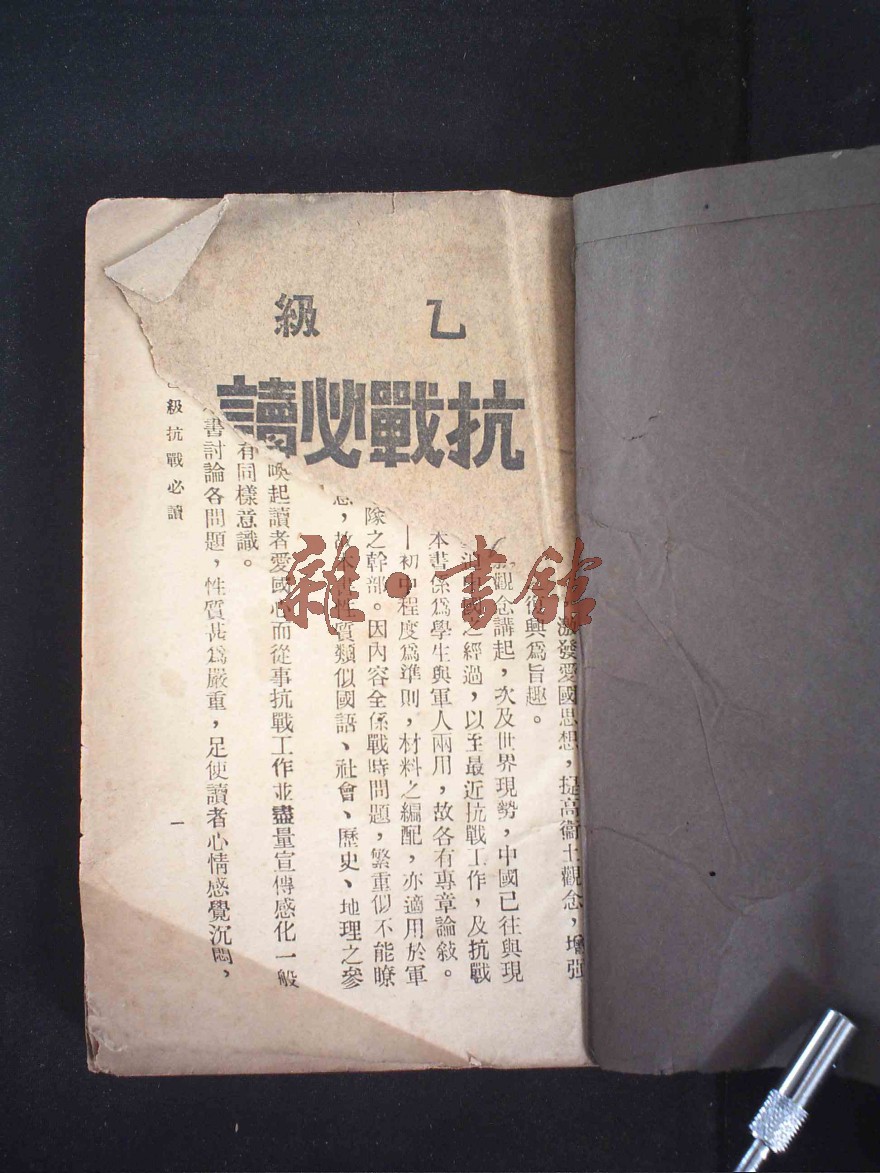 乙級
抗戰必讀
激發愛國思想，提高衞土觀念，增强
復興爲旨趣。
觀念講起，次及世界現勢，中國已往與現
之經過，以至最近抗戰工作，及抗戰
本書係爲學生與軍人兩用，故各有專章論敍。
初中程度爲準則，材料之編配，亦適用於軍
隊之幹部。因內容全係戰時問題，繁重似不能暸
性質類似國語、社會、歷史、地理之參
喚起讀者愛國心而從事抗戰工作並盡量宣傳感化一般
有同樣意識。
書討論各問題，性質甚爲嚴重，足使讀者心情感覺沉悶，
級抗戰必讀
一
雜·書館